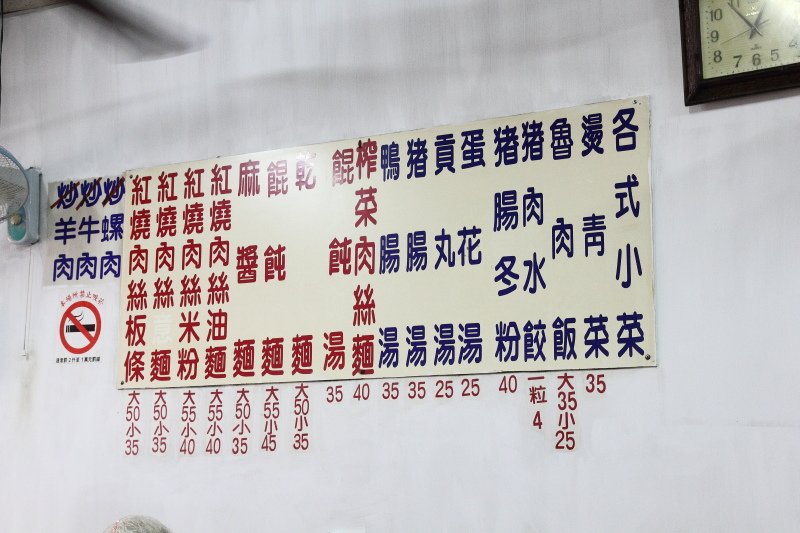 各式小菜
燙青菜 35
魯肉飯 大35小25
猪肉水餃 一粒4
猪腸冬粉 40
蛋花湯 25
貢丸湯 25
猪腸湯 35
鴨腸湯 35
榨菜肉絲麵 40
餛飩湯 35
乾麵 大50小35
餛飩麵 大55小45
麻醬麵 大50小35
紅燒肉絲油麵 大55小40
紅燒肉絲米粉 大55小40
紅燒肉絲麵 大50小35
紅燒肉絲板條 大50小35
炒螺肉
炒牛肉
炒羊肉
本場所禁止吸菸